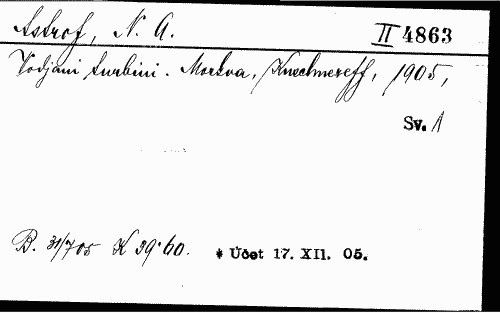 Astrof, N. A. II 4863
Vodjani turbini. Moskva, Kuschnereff, 1905,
Sv. 1
B. 31/7 05 K 39·60. * Účet 17. XII. 05.